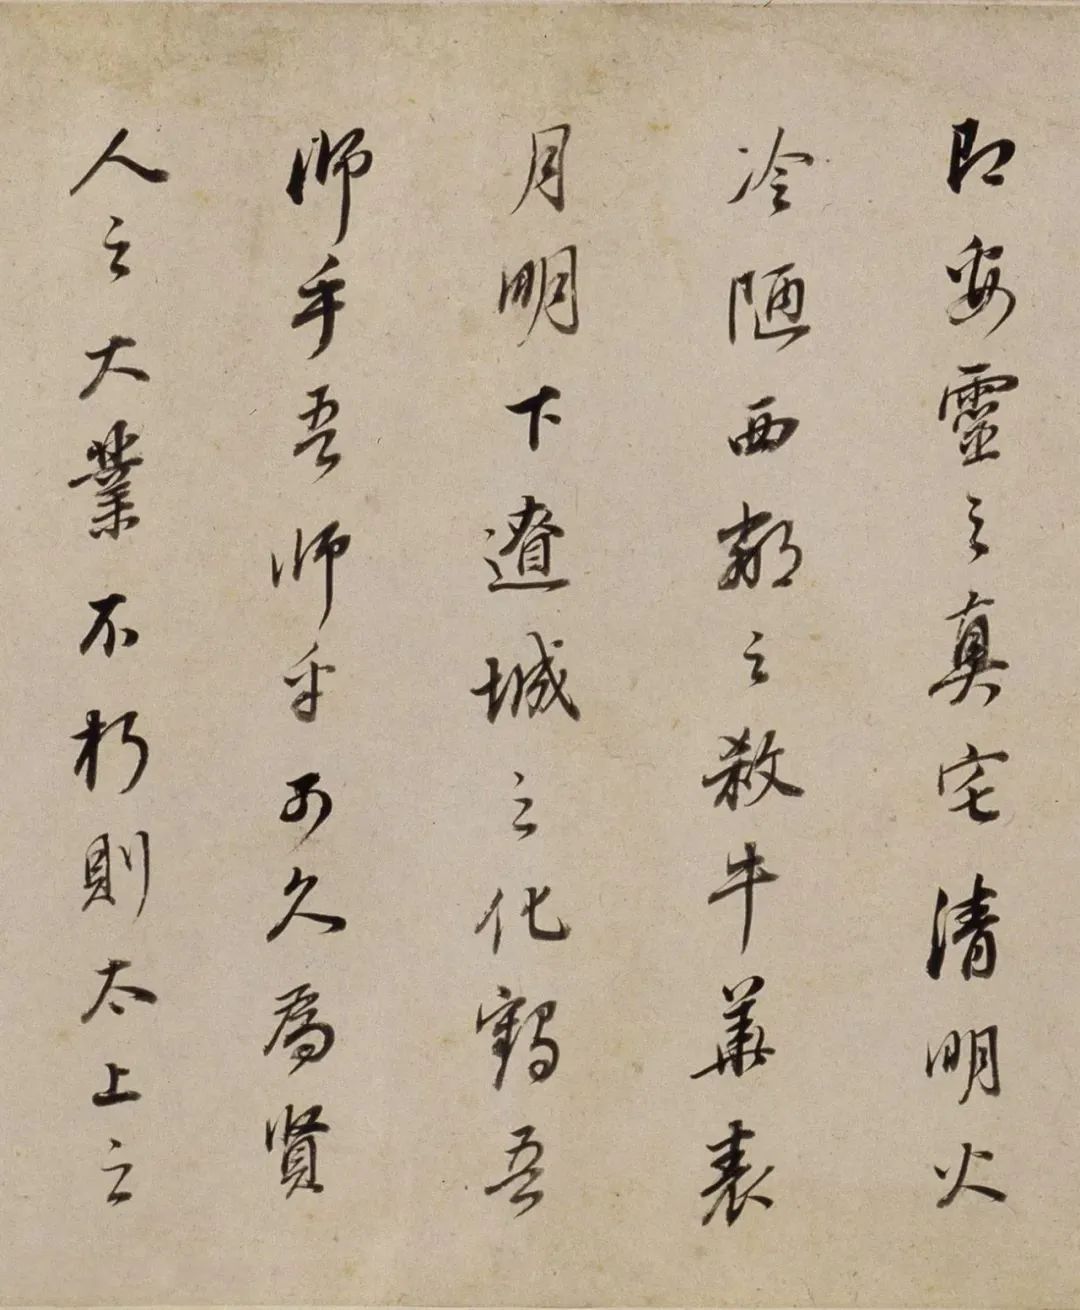 即安靈之真宅清明火
冷陋西鄰之殺牛華表
月明下遼城之化鶴吾
師乎吾師乎可久爲賢
人之大業不朽則太上之